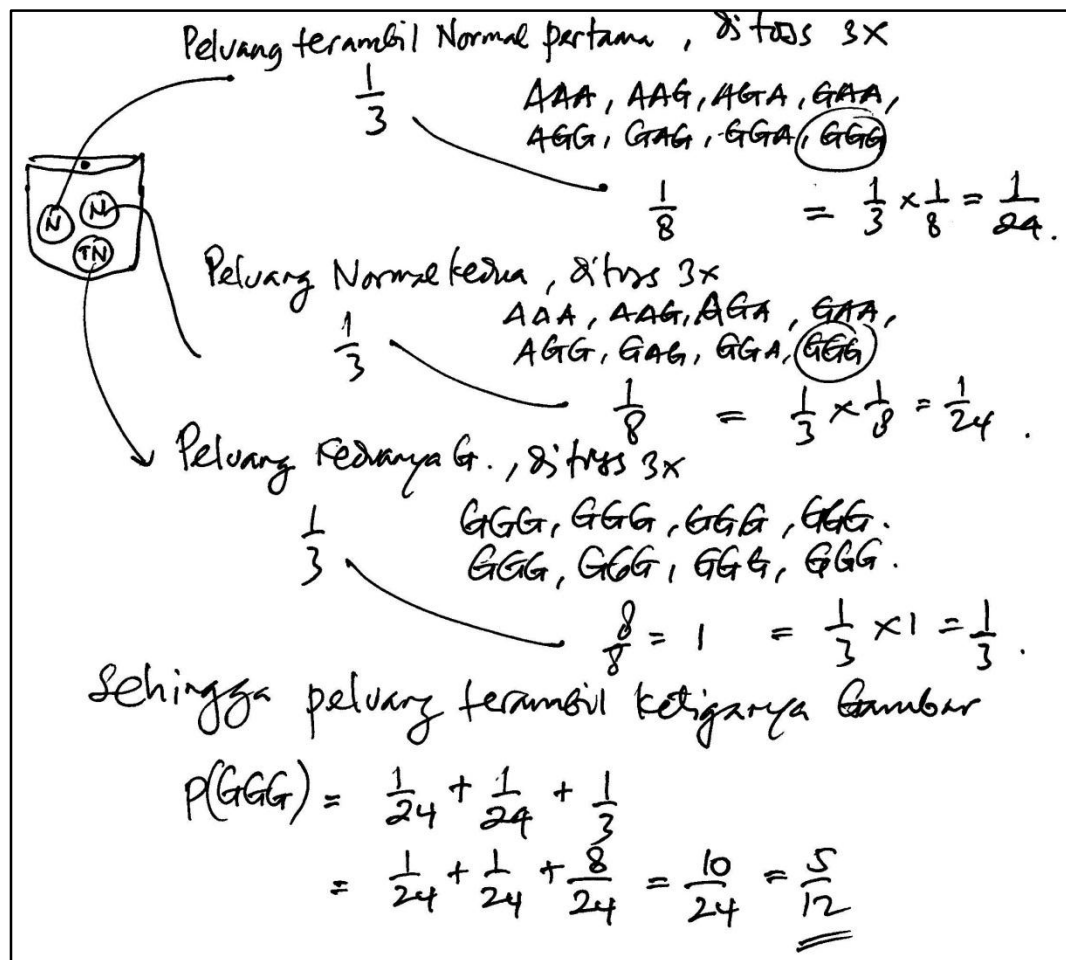 Peluang terambil Normal pertama, ditoss 3x
1/3
AAA, AAG, AGA, GAA,
AGG, GAG, GGA, GGG
1/8 = 1/3 × 1/8 = 1/24.
N N
TN
Peluang Normal kedua, ditoss 3x
1/3
AAA, AAG, AGA, GAA,
AGG, GAG, GGA, GGG
1/8 = 1/3 × 1/8 = 1/24.
Peluang keduanya G., ditoss 3x
1/3
GGG, GGG, GGG, GGG.
GGG, GGG, GGG, GGG.
8/8 = 1 = 1/3 × 1 = 1/3.
Sehingga peluang terambil ketiganya Gambar
P(GGG) = 1/24 + 1/24 + 1/3
= 1/24 + 1/24 + 8/24 = 10/24 = 5/12